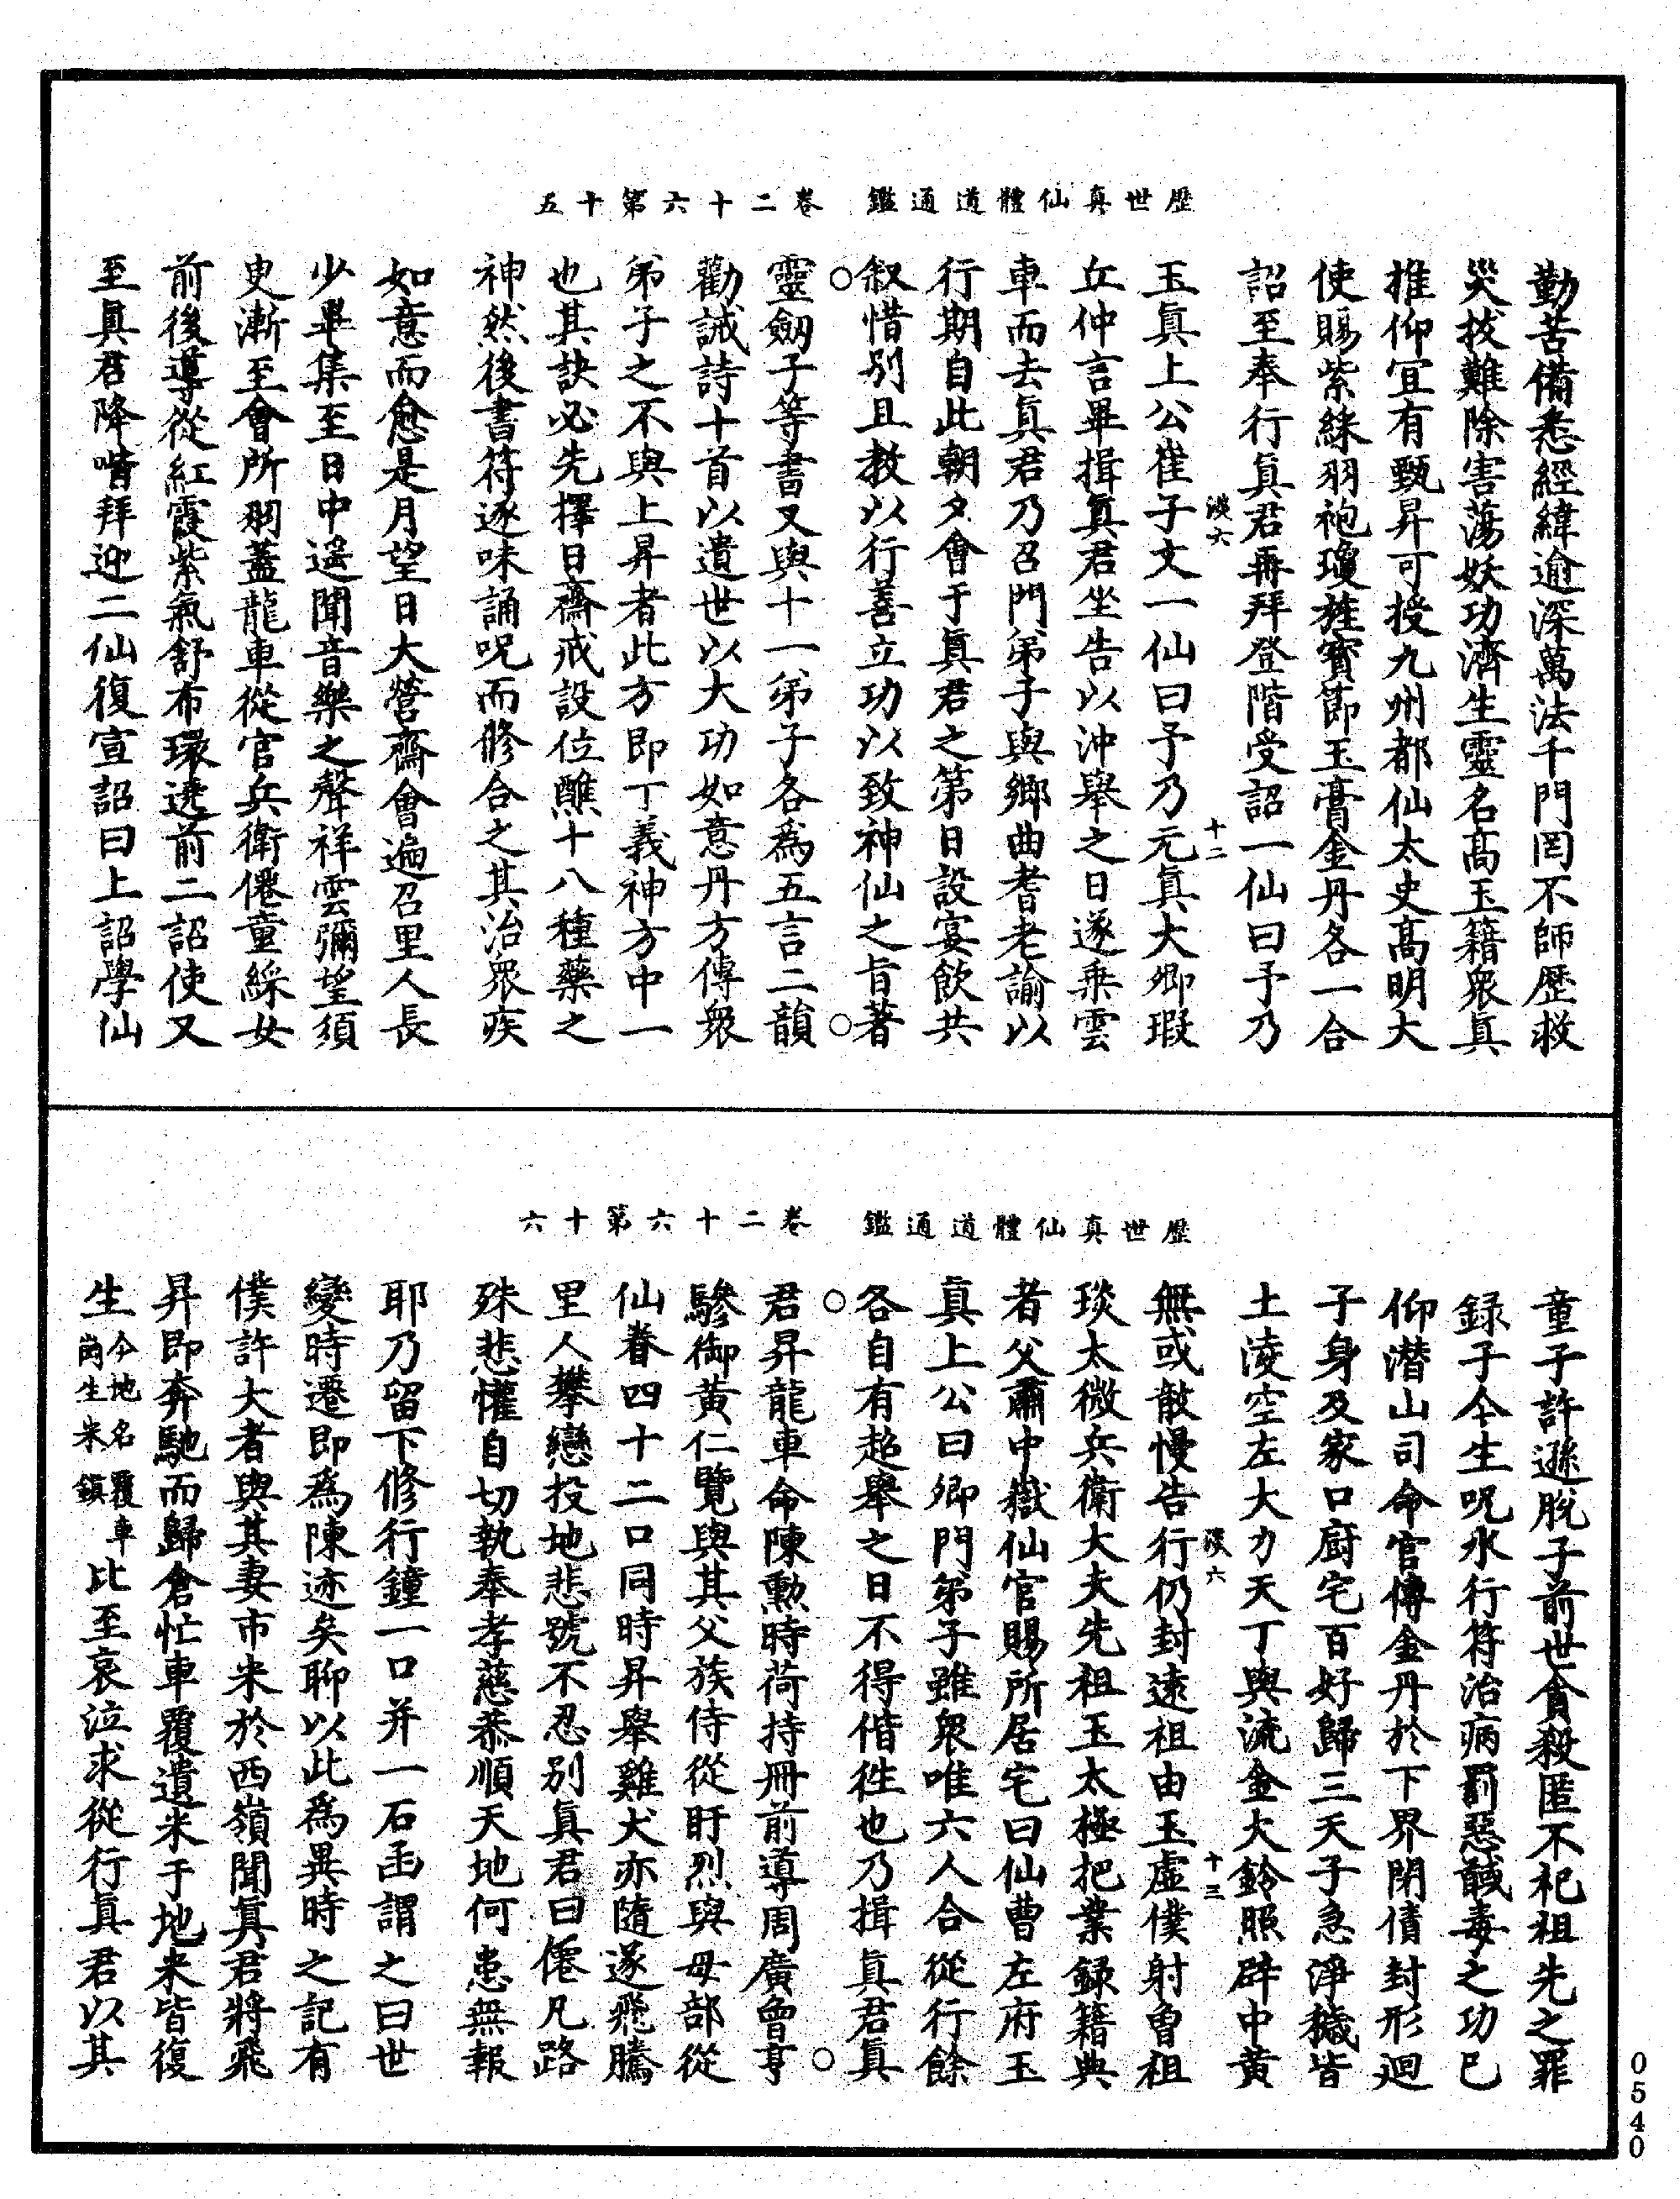 歷世真仙體道通鑑　卷二十六第十五
勤苦備悉經緯逾深萬法千門罔不師歷救
災拔難除害蕩妖功濟生靈名高玉籍衆真
推仰宜有甄昇可授九州都仙太史高明大
使賜紫綵羽袍瓊旌寶節玉膏金丹各一合
詔至奉行真君再拜登階受詔一仙曰予乃
漠六　十二
玉真上公崔子文一仙曰予乃元真大卿瑕
丘仲言畢揖真君坐告以沖舉之日遂乘雲
車而去真君乃召門弟子與鄉曲耆老諭以
行期自此朝夕會于真君之第日設宴飲共
叙惜別且教以行善立功以致神仙之旨著
○　○
靈劒子等書又與十一弟子各為五言二韻
勸誡詩十首以遺世以大功如意丹方傳衆
弟子之不與上昇者此方即丁義神方中一
也其訣必先擇日齋戒設位醮十八種藥之
神然後書符逐味誦呪而修合之其治衆疾
如意而愈是月望日大營齋會遍召里人長
少畢集至日中遥聞音樂之聲祥雲彌望須
臾漸至會所羽蓋龍車從官兵衛僊童綵女
前後導從紅霞紫氣舒布環遶前二詔使又
至真君降階拜迎二仙復宣詔曰上詔學仙
歷世真仙體道通鑑　卷二十六第十六
童子許遜脫子前世貪殺匿不祀祖先之罪
録子今生呪水行符治病罰惡馘毒之功已
仰潛山司命官傳金丹於下界閉債封形迴
子身及家口厨宅百好歸三天子急淨穢皆
土淩空左大力天丁與流金大鈴照辟中黄
漠六　十三
無或散慢告行仍封遠祖由玉虛僕射曽祖
琰太微兵衛大夫先祖玉太極把業録籍典
者父肅中嶽仙官賜所居宅曰仙曹左府玉
真上公曰卿門弟子雖衆唯六人合從行餘
各自有超舉之日不得偕徃也乃揖真君真
○　○
君昇龍車命陳勳時荷持冊前導周廣曽亨
驂御黄仁覽與其父族侍從盱烈與母部從
仙眷四十二口同時昇舉雞犬亦隨遂飛騰
里人攀戀投地悲號不忍别真君曰僊凡路
殊悲懽自切執奉孝慈恭順天地何患無報
耶乃留下修行鐘一口并一石函謂之曰世
變時遷即為陳迹矣聊以此為異時之記有
僕許大者與其妻市米於西嶺聞真君將飛
昇即奔馳而歸倉忙車覆遺米于地米皆復
生今地名覆車崗生米鎮比至哀泣求從行真君以其
0540